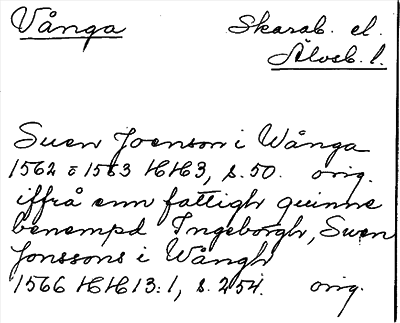 Vånga Skarab. el.
Älvsb. l.
Suen Joenson i Wånga
1562 o 1563 HH3, s. 50. orig.
iffrå enn fattigh quinne
benempd Ingeborgh, Suen
Jonssons i Wångh
1566 HH13:1, s. 254. orig.